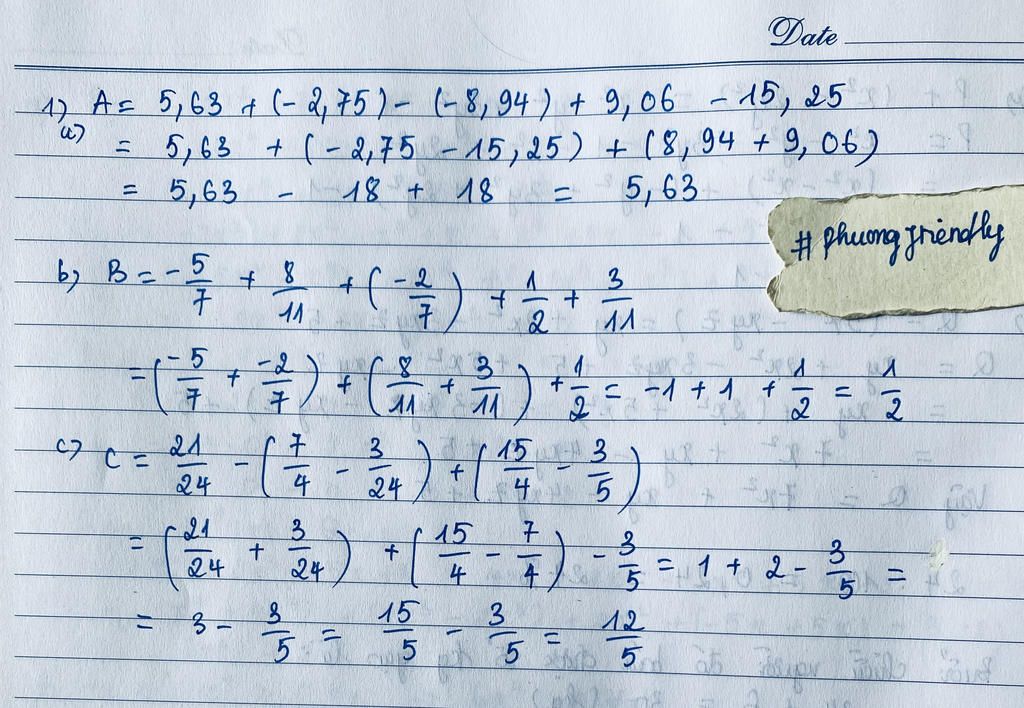 Date
1) A = 5,63 + (- 2,75) - (- 8,94) + 9,06 - 15,25
a)
= 5,63 + (- 2,75 - 15,25) + (8,94 + 9,06)
= 5,63 - 18 + 18 = 5,63
# phuong friendly
b) B = - 5/7 + 8/11 + (- 2/7) + 1/2 + 3/11
= (-5/7 + -2/7) + (8/11 + 3/11) + 1/2 = -1 + 1 + 1/2 = 1/2
c) C = 21/24 - (7/4 - 3/24) + (15/4 - 3/5)
= (21/24 + 3/24) + (15/4 - 7/4) - 3/5 = 1 + 2 - 3/5 =
= 3 - 3/5 = 15/5 - 3/5 = 12/5